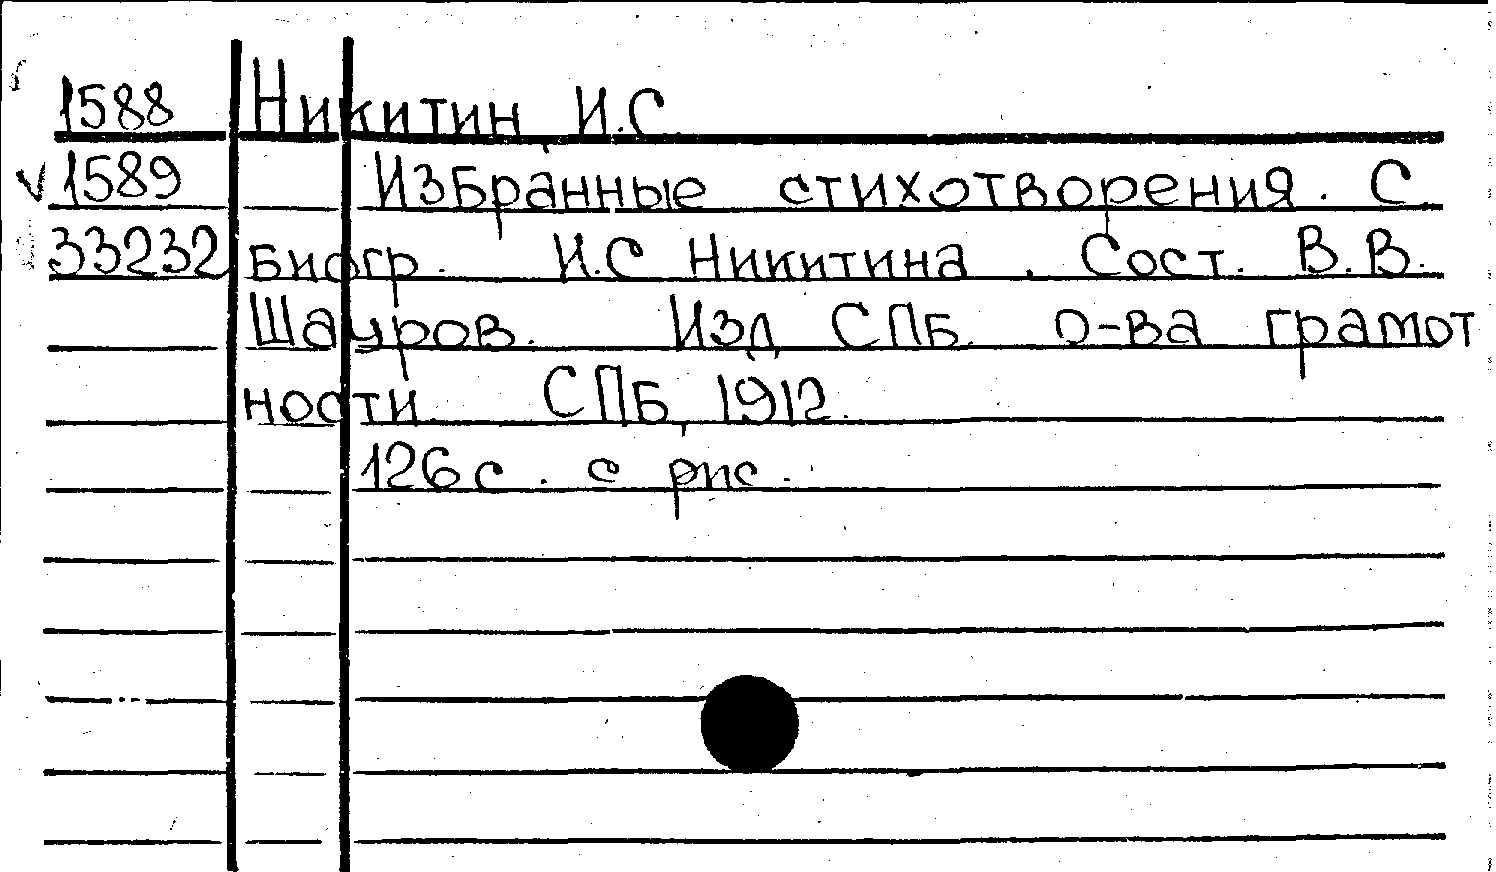 1588 Никитин И.С
√ 1589 Избранные стихотворения. С
33232 Биогр. И.С Никитина. Сост. В.В.
Шауров. Изд СПБ. о-ва грамот
ности. СПБ, 1912.
126 с. с рис.